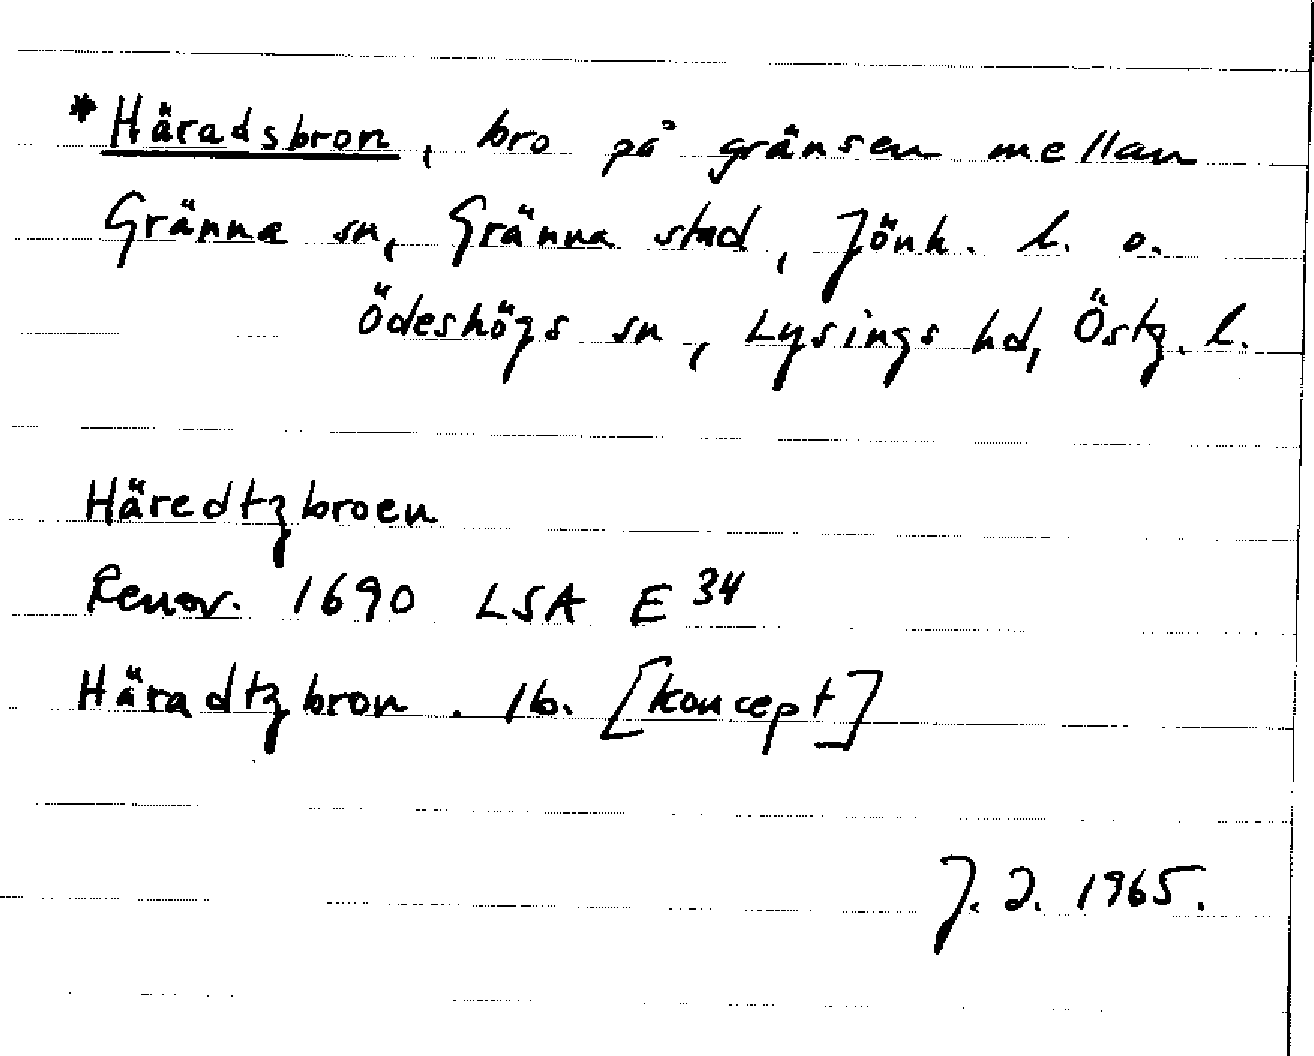 *Häradsbron, bro på gränsen mellan
Gränna sn, Gränna stad, Jönk. l. o.
Ödeshögs sn, Lysings hd, Östg. l.
Häredtzbroen
Renov. 1690 LSA E 34
Häradtzbron. Ib. [koncept]
J. D. 1965.